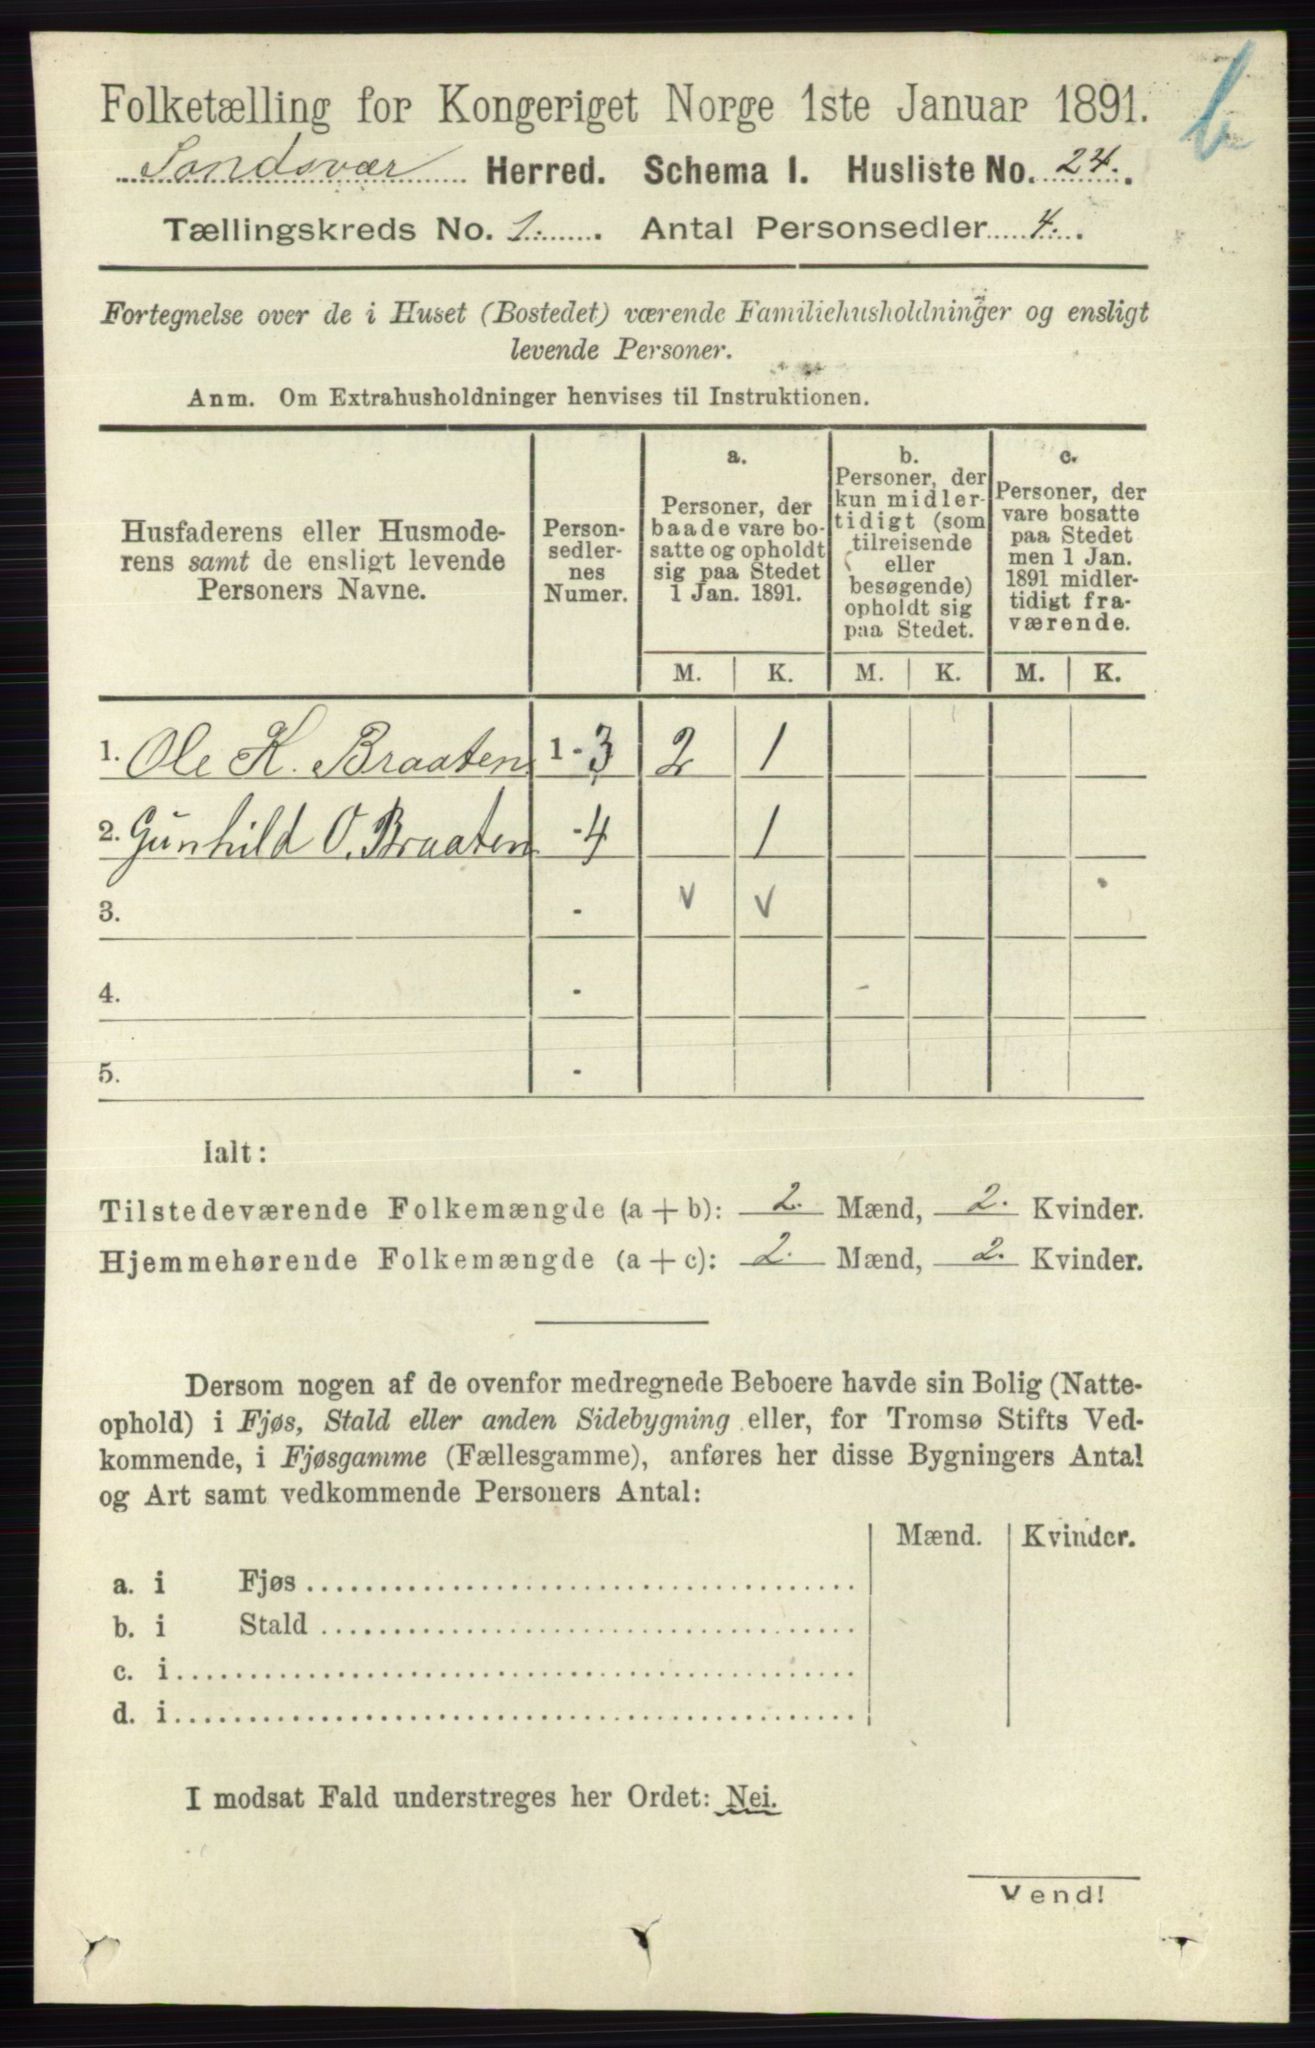 b
Folketælling for Kongeriget Norge 1ste Januar 1891.
Sandsvær Herred. Schema I. Husliste No. 24.
Tællingskreds No. 1. Antal Personsedler 4.
Fortegnelse over de i Huset (Bostedet) værende Familiehusholdninger og ensligt
levende Personer.
Anm. Om Extrahusholdninger henvises til Instruktionen.
Husfaderens eller Husmode-
rens samt de ensligt levende
Personers Navne.
Person-
sedler-
nes
Numer.
a.
Personer, der
baade vare bo-
satte og opholdt
sig paa Stedet
1 Jan. 1891.
b.
Personer, der
kun midler-
tidigt (som
tilreisende
eller
besøgende)
opholdt sig
paa Stedet.
c.
Personer, der
vare bosatte
paa Stedet
men 1 Jan.
1891 midler-
tidigt fra-
værende.
M. K. M. K. M. K.
1. Ole K. Braaten 1-3 2 1
2. Gunhild O. Braaten -4 1
3. - v v
4. -
5. -
Ialt:
Tilstedeværende Folkemængde (a + b): 2. Mænd, 2. Kvinder.
Hjemmehørende Folkemængde (a + c): 2. Mænd, 2. Kvinder.
Dersom nogen af de ovenfor medregnede Beboere havde sin Bolig (Natte-
ophold) i Fjøs, Stald eller anden Sidebygning eller, for Tromsø Stifts Ved-
kommende, i Fjøsgamme (Fællesgamme), anføres her disse Bygningers Antal
og Art samt vedkommende Personers Antal:
Mænd. Kvinder.
a. i Fjøs
b. i Stald
c. i
d. i
I modsat Fald understreges her Ordet: Nei.
Vend!